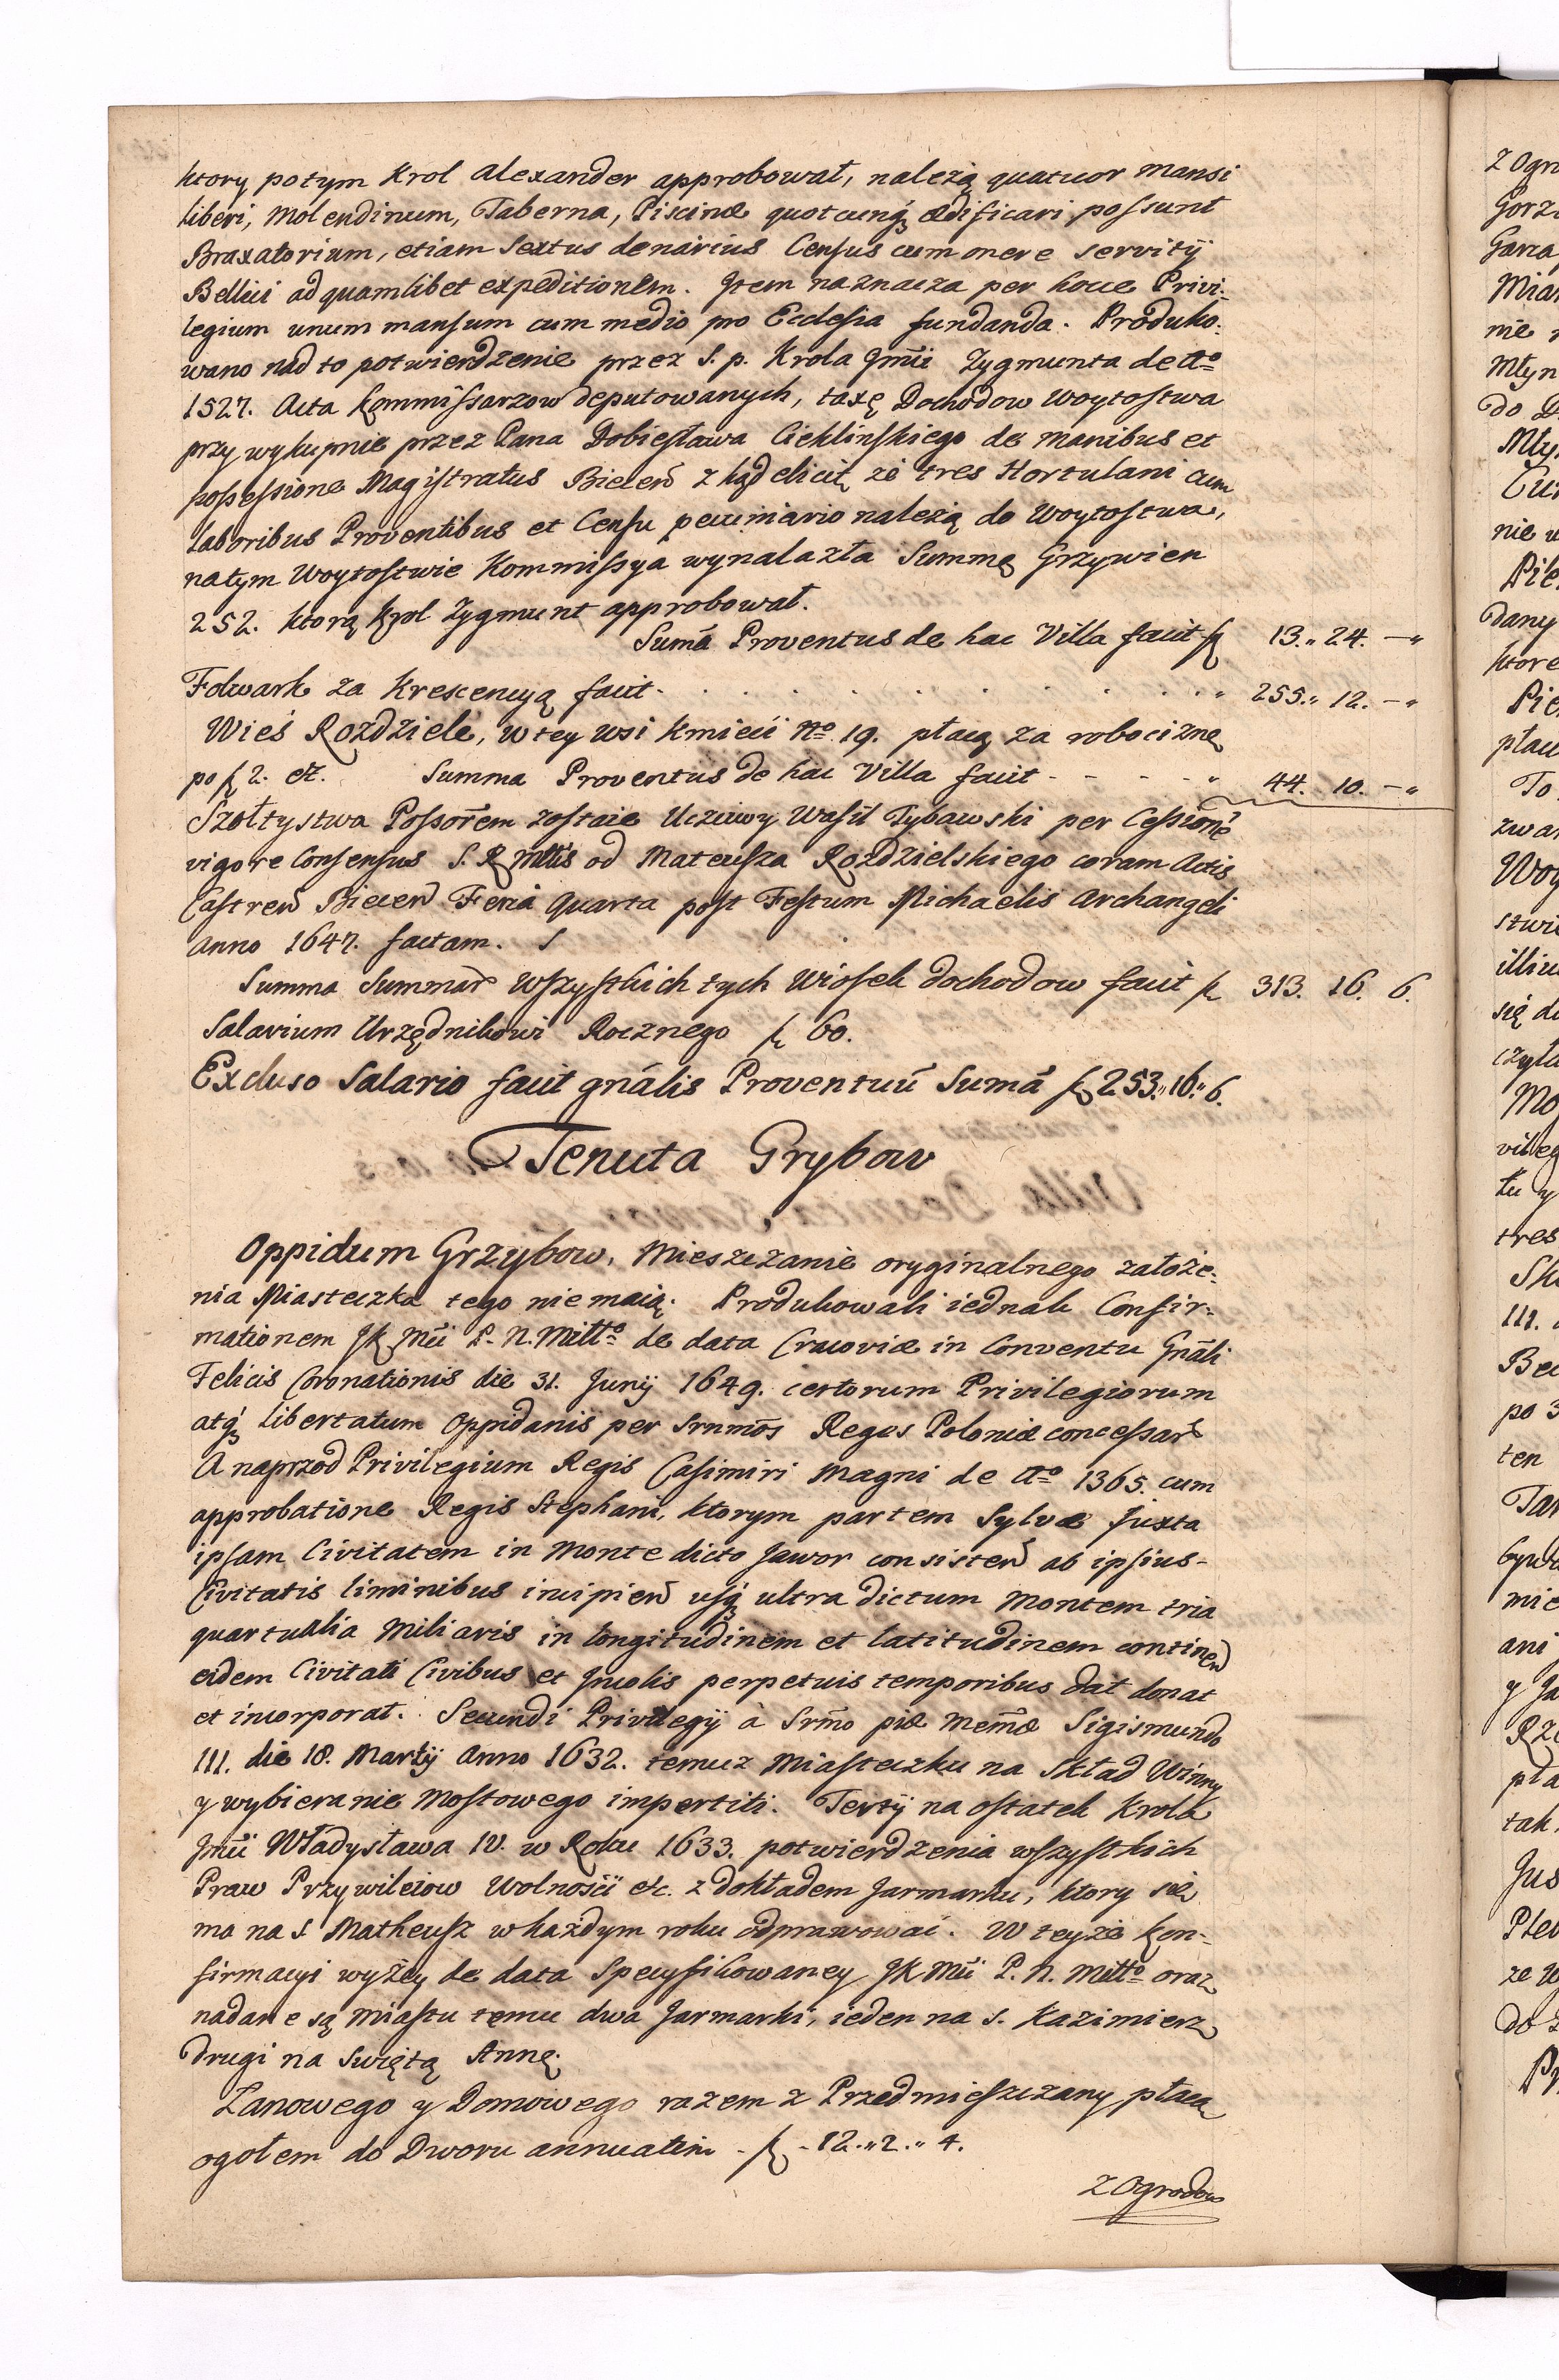 ktory potym Krol Alexander approbował, należą quatuor mansi
liberi, Molendinum, Taberna, Piscinæ quotcunq́ ædificari possunt
Braxatorium, etiam Sextus denarius Census cum onere servitÿ
Bellici ad quamlibet expeditionem. Item naznacza per hocce Privi-
legium unum mansum cum medio pro Ecclesia fundanda. Produko-
wano nad to potwierdzenie przez S. p. Krola Jm̃ci Zygmunta de Aº
1527. Acta Kommissarzow deputowanych, taxę Dochodow Woytostwa
przy wykupnie przez Pana Dobiesława Cieklinskiego de manibus et
possessione Magistratus Biecen̄ z kąd elicit, że tres Hortulani cum
laboribus Proventibus et Censu pecuniario należą do Woytostwa,
na tym Woytostwie Kommissya wynalazła Summę Grzywien
252. ktorą Krol Zygmunt approbował.
Sum̃a Proventus de hac Villa facit f 13.,, 24. —,,
Folwark za Krescencyą facit . . . . . . . . . . ,, 255.,, 12. —,,
Wieś Rozdziele, w tey wsi Kmieci Nº 19. płacą za robociznę
po f 2. etz. Summa Proventus de hac Villa facit - - - - ,, 44. 10. —,,
Szołtystwa Possor̃em zostaie Uczciwy Wasil Tybawski per Cession̄e
vigore Consensus S. R. Mttis od Mateusza Rozdzielskiego coram Actis
Castren̄ Biecen̄ Feria Quarta post Festum Michaelis Archangeli
Anno 1647. factam.
Summa Summar̄ wszystkich tych Wiosek dochodow facit f 313. 16. 6.
Salarium Urzędnikowi Rocznego f 60.
Excluso Salario facit gn̄alis Proventuū Sum̃a f 253.,, 16.,, 6.
Tenuta Grybow
Oppidum Grzybow, Mieszczanie oryginalnego założe-
nia Miasteczka tego nie maią. Produkowali iednak Confir-
mationem JK Mci P. N. Miłłº de data Cracoviæ in Conventu Gn̄ali
Felicis Coronationis die 31. Junÿ 1649. certorum Privilegiorum
atq́ libertatum Oppidanis per Srnmōs Reges Poloniæ concessar̄
A naprzod Privilegium Regis Casimiri Magni de Aº 1365. cum
approbatione Regis Stephani, ktorym partem Sylvæ Juxta
ipsam Civitatem in Monte dicto Jawor consisten̄ ab ipsius-
Civitatis liminibus incipien̄ usq́ ultra dictum Montem tria
quartualia Miliaris in longitudinem et latitudinem continen̄
eidem Civitati Civibus et Incolis perpetuis temporibus dat donat
et incorporat. Secundi Privilegÿ à Srm̃o piæ Mem̃æ Sigismundo
III. die 18. Martÿ Anno 1632. temuz Miasteczku na Skład Winny
y wybieranie Mostowego impertiti. Tertÿ na ostatek Krola
Jm̃ci Władysława IV. w Roku 1633. potwierdzenia wszystkich
Praw Przywileiow Wolności etc. z dokładem Jarmarku, ktory się
ma na S. Matheusz w każdym roku odprawować. W teyże Kon-
firmacyi wyżey de data Specyfikowaney JK Mci P. N. Miłłº oraz
nadane są Miastu temu dwa Jarmarki, ieden na S. Kazimierz
drugi na Swiętą Annę.
Łanowego y Domowego razem z Przedmieszczany płacą
ogołem do Dworu annuatim - f - 12.,, 2.,, 4.
Z Ogrodow